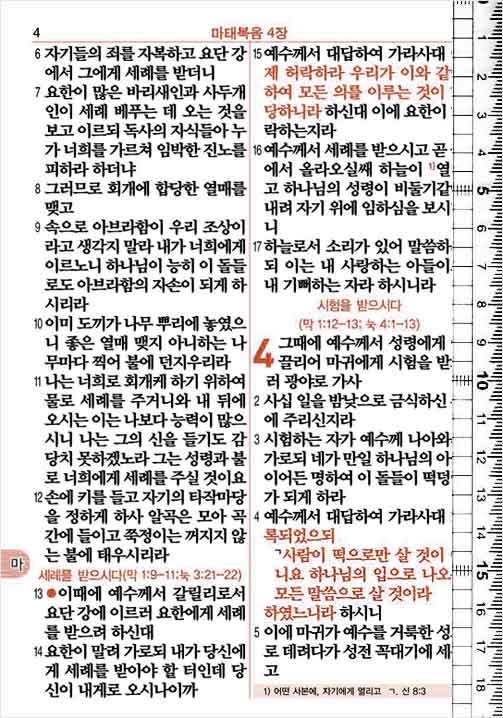 4
마태복음 4장
6 자기들의 죄를 자복하고 요단 강
에서 그에게 세례를 받더니
7 요한이 많은 바리새인과 사두개
인이 세례 베푸는 데 오는 것을
보고 이르되 독사의 자식들아 누
가 너희를 가르쳐 임박한 진노를
피하라 하더냐
8 그러므로 회개에 합당한 열매를
맺고
9 속으로 아브라함이 우리 조상이
라고 생각지 말라 내가 너희에게
이르노니 하나님이 능히 이 돌들
로도 아브라함의 자손이 되게 하
시리라
10 이미 도끼가 나무 뿌리에 놓였으
니 좋은 열매 맺지 아니하는 나
무마다 찍어 불에 던지우리라
11 나는 너희로 회개케 하기 위하여
물로 세례를 주거니와 내 뒤에
오시는 이는 나보다 능력이 많으
시니 나는 그의 신을 들기도 감
당치 못하겠노라 그는 성령과 불
로 너희에게 세례를 주실 것이요
12 손에 키를 들고 자기의 타작마당
을 정하게 하사 알곡은 모아 곡
간에 들이고 쭉정이는 꺼지지 않
는 불에 태우시리라
마
세례를 받으시다(막 1:9-11; 눅 3:21-22)
13 ●이때에 예수께서 갈릴리로서
요단 강에 이르러 요한에게 세례
를 받으려 하신대
14 요한이 말려 가로되 내가 당신에
게 세례를 받아야 할 터인데 당
신이 내게로 오시나이까
15 예수께서 대답하여 가라사대
제 허락하라 우리가 이와 같
하여 모든 의를 이루는 것이
당하니라 하신대 이에 요한이
락하는지라
16 예수께서 세례를 받으시고 곧
에서 올라오실쌔 하늘이 1)열
고 하나님의 성령이 비둘기같
내려 자기 위에 임하심을 보시
니
17 하늘로서 소리가 있어 말씀하
되 이는 내 사랑하는 아들이
내 기뻐하는 자라 하시니라
시험을 받으시다
(막 1:12-13; 눅 4:1-13)
4 그때에 예수께서 성령에게
끌리어 마귀에게 시험을 받
러 광야로 가사
2 사십 일을 밤낮으로 금식하신
에 주리신지라
3 시험하는 자가 예수께 나아와
가로되 네가 만일 하나님의 아
이어든 명하여 이 돌들이 떡덩
가 되게 하라
4 예수께서 대답하여 가라사대
록되었으되
ㄱ사람이 떡으로만 살 것이
니요 하나님의 입으로 나오
모든 말씀으로 살 것이라
하였느니라 하시니
5 이에 마귀가 예수를 거룩한 성
로 데려다가 성전 꼭대기에 세
고
1) 어떤 사본에, 자기에게 열리고 ㄱ. 신 8:3
1
2
3
4
5
6
7
8
9
10
11
12
13
14
15
16
17
18